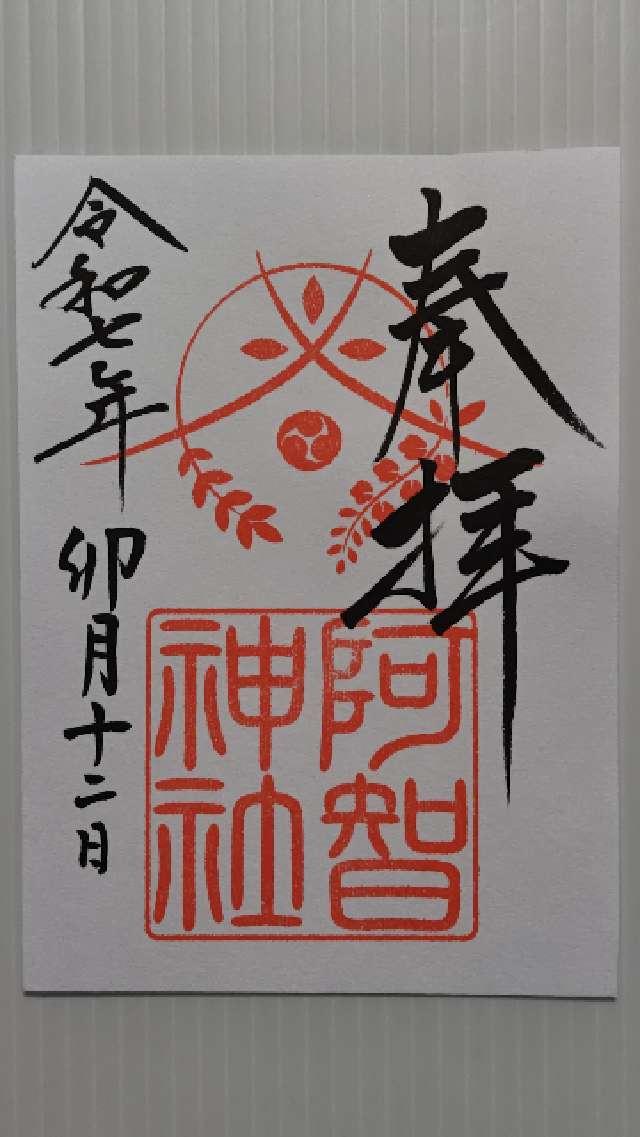 奉拝
阿智
神社
令和七年 卯月十二日